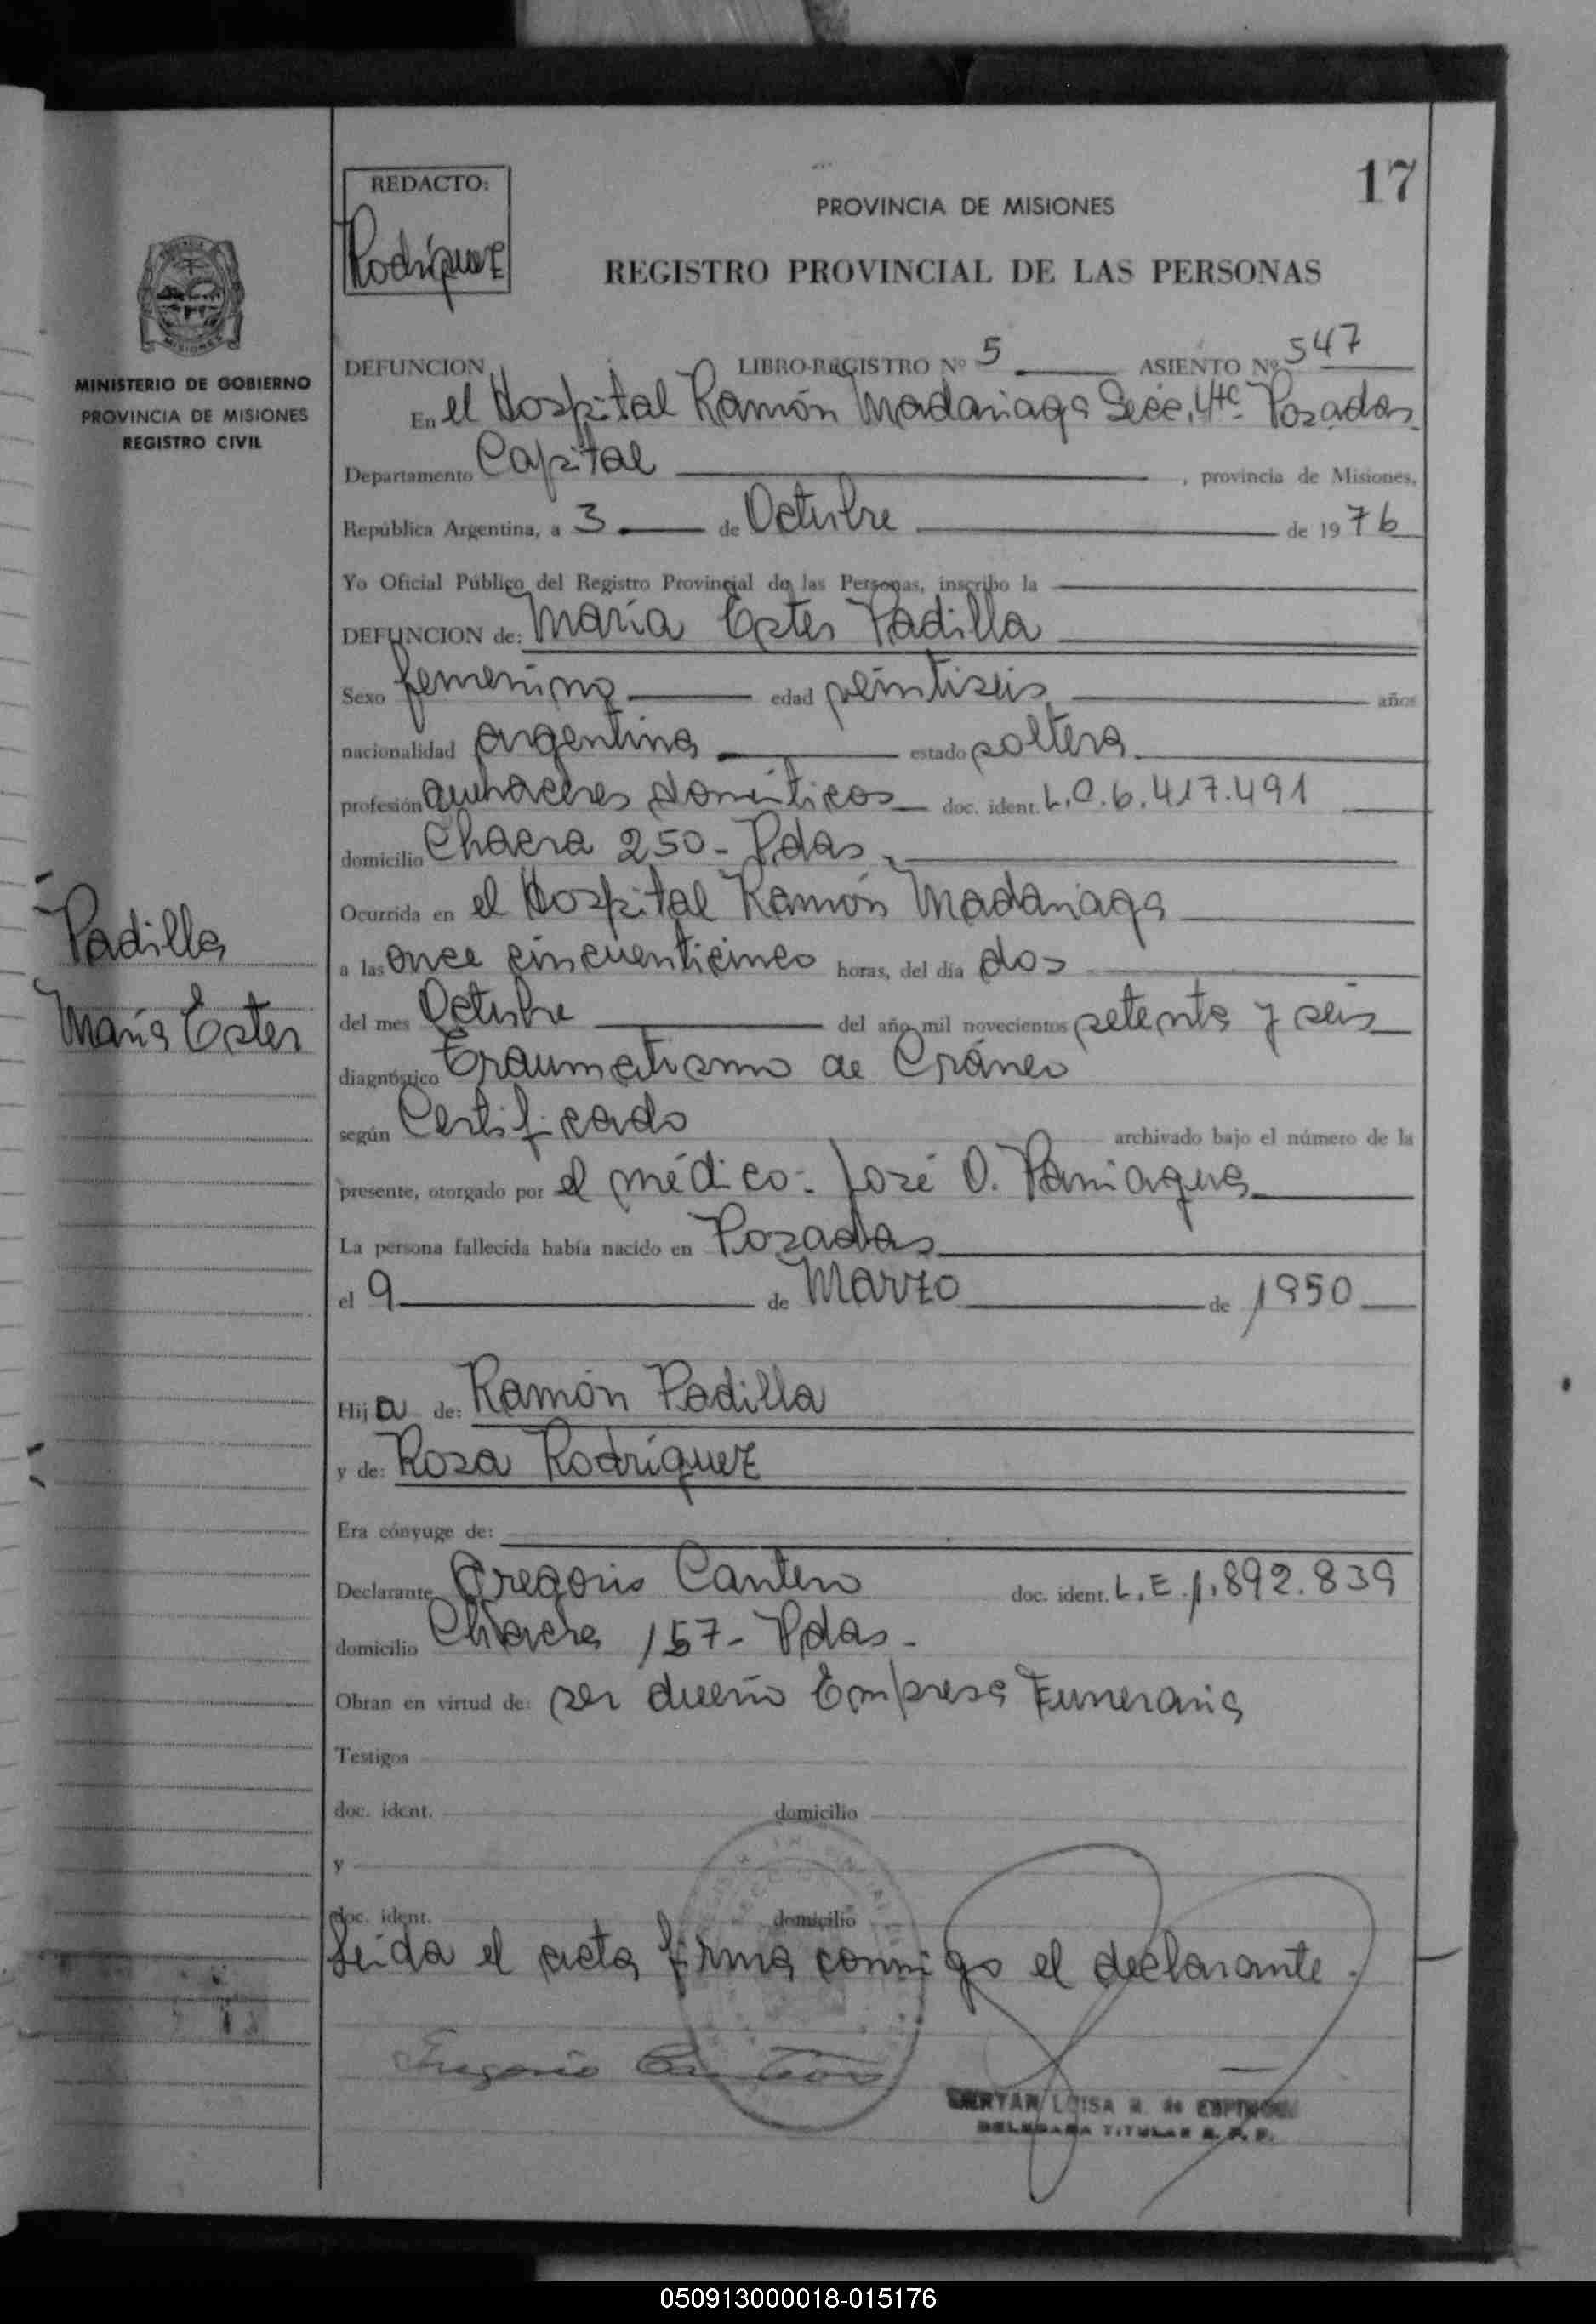 17
REDACTO:
Rodríguez
PROVINCIA DE MISIONES
REGISTRO PROVINCIAL DE LAS PERSONAS
MISIONES
MINISTERIO DE GOBIERNO
PROVINCIA DE MISIONES
REGISTRO CIVIL
DEFUNCION LIBRO-REGISTRO Nº 5 ASIENTO Nº 547
En el Hospital Ramón Madariaga Secc. 4ta. Posadas
Departamento Capital , provincia de Misiones,
República Argentina, a 3 de Octubre de 1976
Yo Oficial Público del Registro Provincial de las Personas, inscribo la
DEFUNCION de: María Ester Padilla
Sexo femenino edad veintiseis años
nacionalidad argentina estado soltera
profesión quehaceres domésticos doc. ident. L.C. 6.417.491
domicilio Chacra 250 - Pdas.
Ocurrida en el Hospital Ramón Madariaga
a las once cincuenticinco horas, del día dos
del mes Octubre del año mil novecientos setenta y seis
diagnóstico Traumatismo de Cráneo
según Certificado archivado bajo el número de la
presente, otorgado por el médico: José O. Paniagua
La persona fallecida había nacido en Posadas
el 9 de Marzo de 1950
Hija de: Ramón Padilla
y de: Rosa Rodríguez
Era cónyuge de:
Declarante Gregorio Cantero doc. ident. L.E. 1.892.839
domicilio Chacra 157 - Pdas -
Obran en virtud de: ser dueño Empresa Funeraria
Testigos
doc. ident. domicilio
y
doc. ident. domicilio
Leida el acta firma conmigo el declarante.
Gregorio Cantero
LUISA R. de ESPINOSA
DELEGADA TITULAR R. P. P.
Padilla
María Ester
050913000018-015176